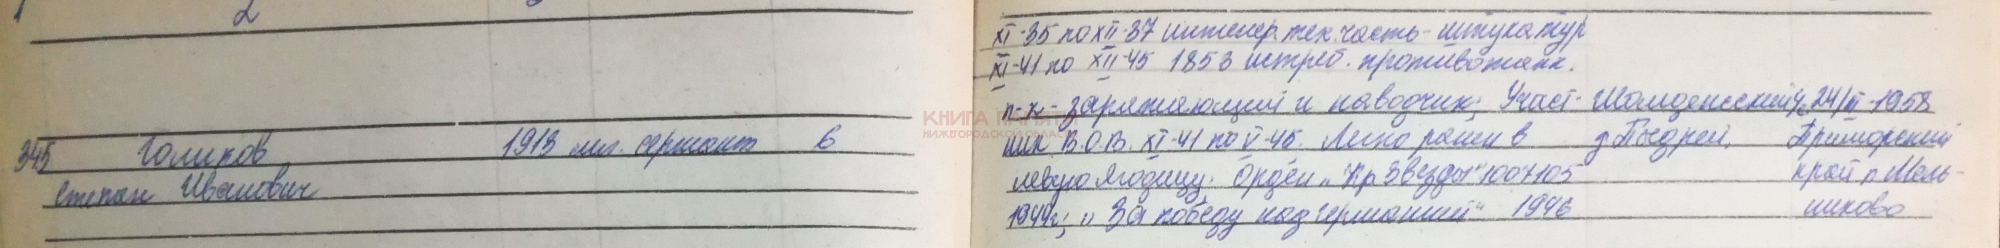 2
XI-35 по XII-37 инженер. тех. часть - штукатур
XI-41 по XII-45 1853 истреб. противотанк.
п-к - заряжающий и наводчик; Участ-
ник В.О.В. XI-41 по V-45. Легко ранен в
левую ягодицу. Орден "Кр Звезды" 1007105
1944г, "За победу над Германией" 1946
345 Голиков 1913 мл. сержант 6
Степан Иванович
24/XI-1958
Приморский
край п Мель-
никово
КНИГА ПАМЯТИ
НИЖЕГОРОДСКОЙ ОБЛАСТИ